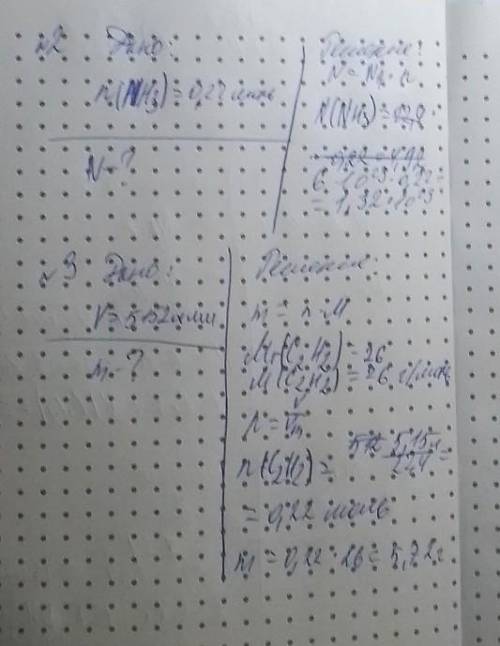 №2 Дано:
n(NH3) = 0,22 моль
N - ?
Решение:
N = NA · n
N(NH3) =
6 · 10²³ · 0,22 =
= 1,32 · 10²³
№3 Дано:
m - ?
Решение
m = n · M
Mr(C2H2) = 26
M(C2H2) = 26 г/моль
n = V/Vm
n(C2H2) = 5,15л/22,4 =
= 0,22 моль
m = 0,22 · 26 = 5,72г